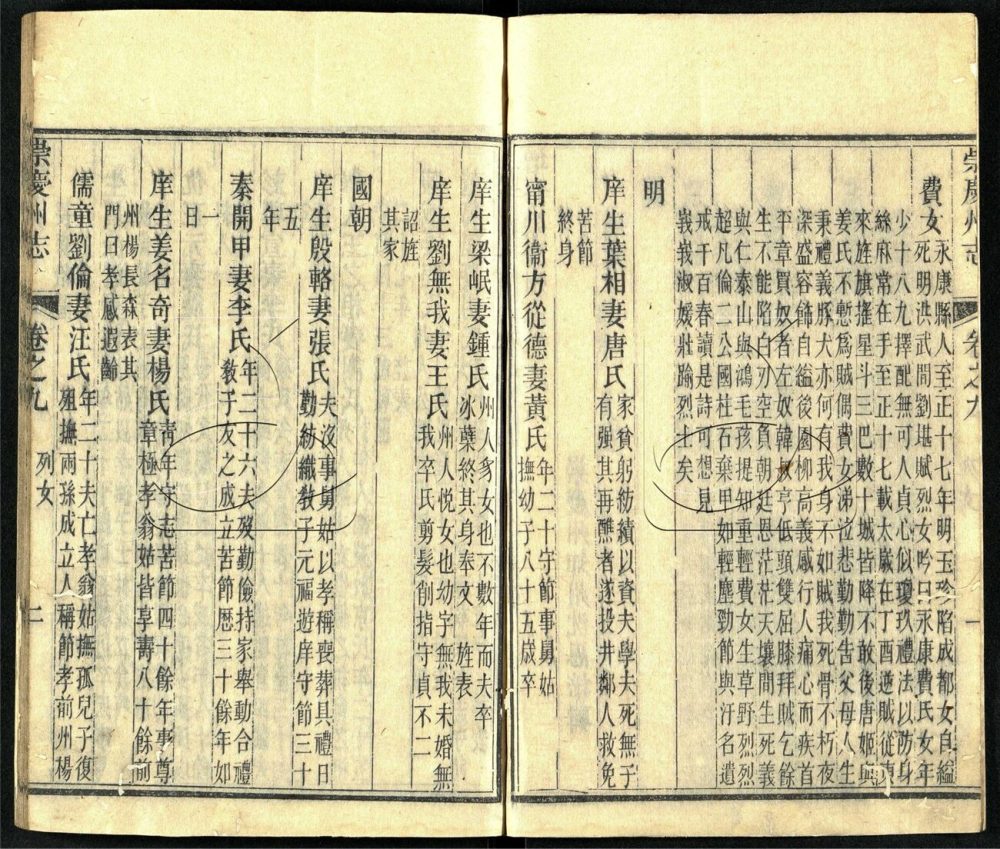 崇慶州志
卷之九
一
費女永康縣人至正十七年明玉珍陷成都女自縊
死明洪武間劉堪賦烈女吟曰永康費氏女年
少十八九擇配無可人貞心似瓊玖禮法以防身
絲麻常在手至正十七載太嵗在丁酉逆賊從東
來旌旗搖星斗三巴數十城皆降不敢後唐姬與
姜氏不慙為賊偶費女涕泣悲勤勤告父母人生
秉禮義豚犬亦何有我身不如賊我死骨不朽夜
深盛容飾自縊後園柳高義感行人痛心而疾首
平章買奴者左奴韓奴亨低頭雙屈膝拜賊乞餘
生不能陷白刃空負朝廷恩茫茫天壤間生死義
與仁泰山與鴻毛孩提知重輕費女生草野烈烈
超凡倫二公國柱石棄甲如輕塵勁節與汙名遺
戒千百春讀是詩可想見
義我淑媛壯踰烈士矣
明
庠生葉相妻唐氏家貧躬紡績以資夫學夫死無子
有强其再醮者遂投井鄰人救免
苦節
終身
甯川衛方從德妻黃氏年二十守節事舅姑
撫幼子八十五歲卒
庠生梁岷妻鍾氏州人身女也不數年而夫卒
冰蘗終其身奉文旌表
庠生劉無我妻王氏州人悅女也幼字無我未婚無
我卒氏剪髮削指守貞不二
詔旌
其家
國朝
庠生殷輅妻張氏夫沒事舅姑以孝稱喪葬具禮日
勤紡織教子元福遊庠守節三十
五
年
秦開甲妻李氏年二十六夫歿勤儉持家舉動合禮
教子友之成立苦節歷三十餘年如
一
日
庠生姜名奇妻楊氏青年守志苦節四十餘年事尊
章極孝翁姑皆享壽八十餘前
州楊長森表其
門曰孝感遐齡
儒童劉倫妻汪氏年二十夫亡孝翁姑撫孤兒子復
殂撫兩孫成立人稱節孝前州楊
崇慶州志
卷之九
列女
二